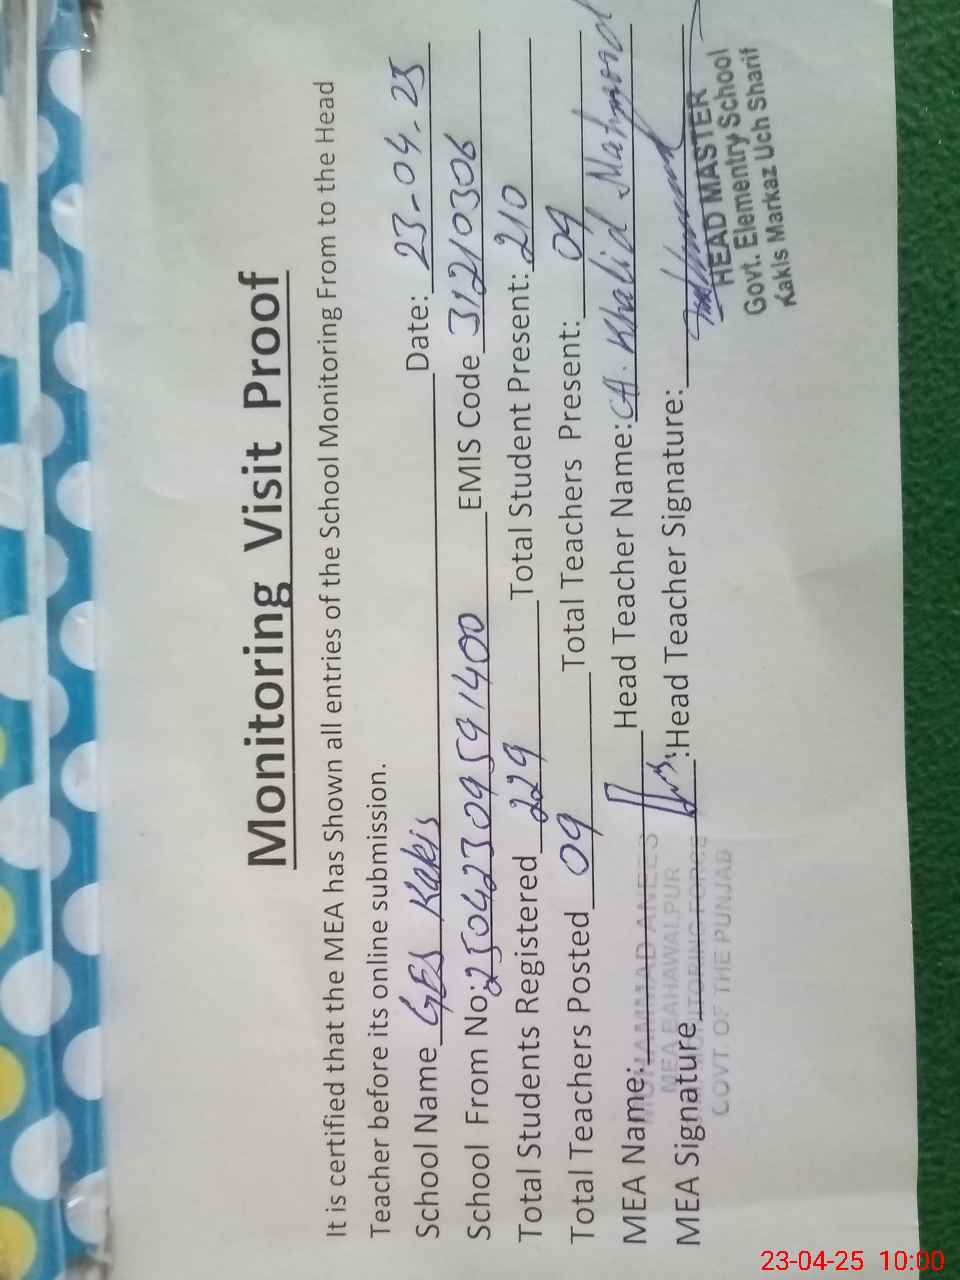 Monitoring Visit Proof
It is certified that the MEA has Shown all entries of the School Monitoring From to the Head
Teacher before its online submission.
School Name GES Kakis Date: 23-04-25
School From No: 25042309591400 EMIS Code 31210306
Total Students Registered 229 Total Student Present: 210
Total Teachers Posted 09 Total Teachers Present: 09
MEA Name: Head Teacher Name: CH. Khalid Mahmood
MUHAMMAD ANEES
MEA BAHAWALPUR
MEA Signature Head Teacher Signature:
MONITORING FORCE
GOVT. OF THE PUNJAB
HEAD MASTER
Govt. Elementry School
Kakis Markaz Uch Sharif
23-04-25 10:00